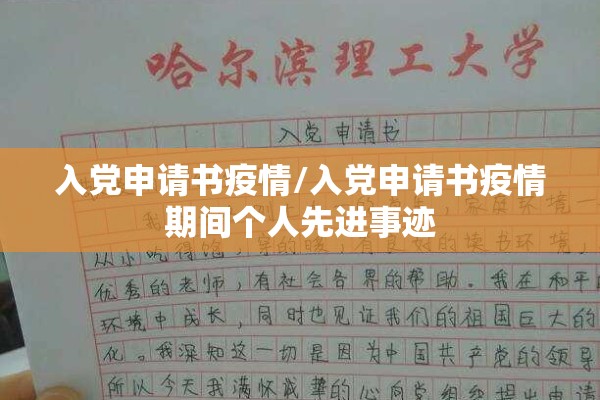 哈尔滨理工大学
入党申请书
入党申请书疫情/入党申请书疫情
期间个人先进事迹
从小吃得饱，穿的暖，有良好的读书环境，
优秀的老师，有社会各界的帮助。我在和平的
环境中成长，同时也见证我们的祖国巨大的
化。我深知这一切是因为中国共产党的领导
所以今天我满怀诚挚的心向党组织提出申请